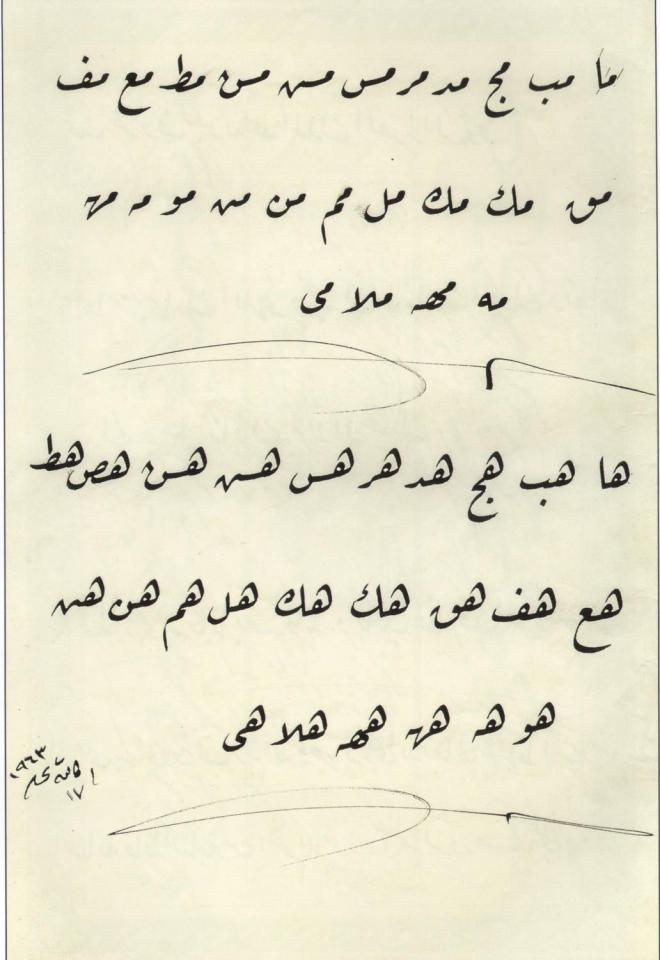 ما مب مج مد مر مس مس مس مط مع مف
مق مك مك مل مم من من مو مه مه
مه مهه ملا مى
ها هب هج هد هر هس هس هس هص هط
هع هف هق هك هك هل هم هن هن
هو هه هه ههه هلا هى
١٩٦٣
١٧